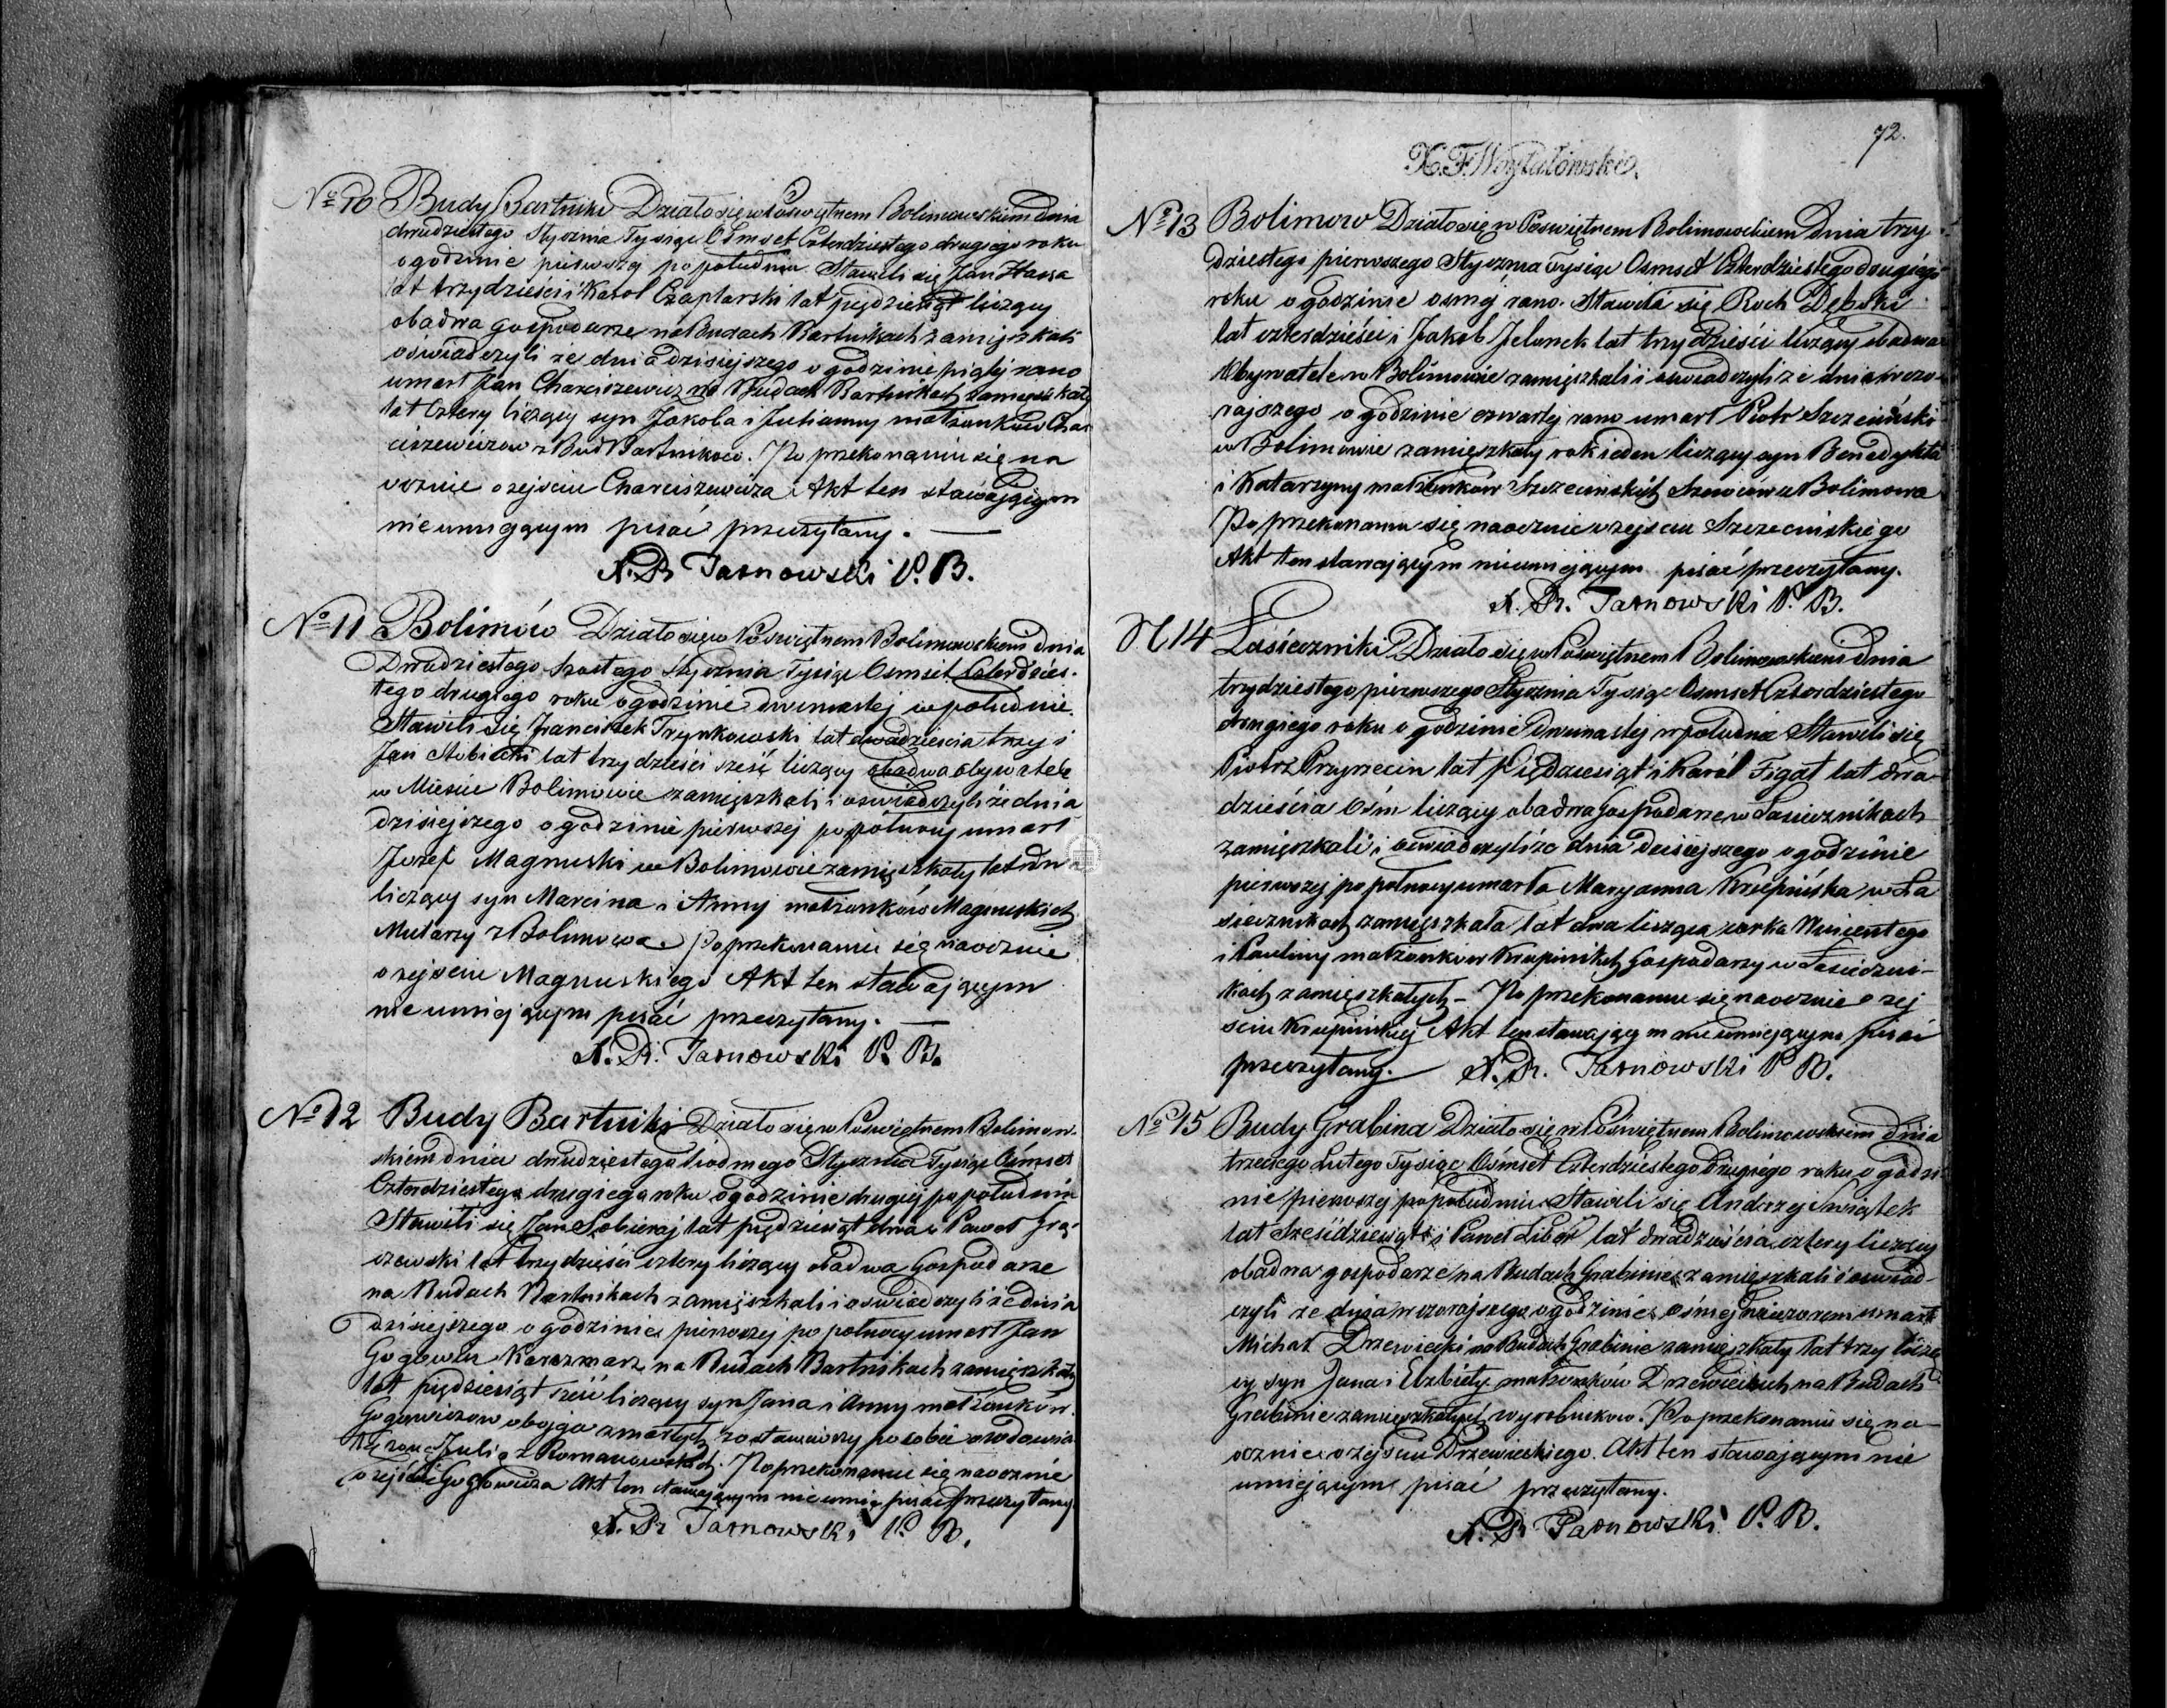 № 10 Budy Bartniki Działo się w Poswiętnem Bolimowskiem dnia
dwudziestego Stycznia Tysiąc Osmset Czterdziestego drugiego roku
o godzinie pierwszej po południu. Stawili się Jan Hassa
lat trzydzieści i Karol Czaplarski lat pięćdziesiąt liczący
obadwa gospodarze na Budach Bartnikach zamięszkali
oświadczyli że dnia dzisiejszego o godzinie piątej rano
umarł Jan Charciszewicz na Budach Bartnikach zamięszkały
lat cztery liczący syn Jakoba i Julianny małżonków Char
ciszewiczow z Bud Bartnikow. Po przekonaniu się na
ocznie o zejściu Charciszewicza Akt ten stawającym
nieumiejącym pisać przeczytany.
X. R. Tarnowski P. B.
№ 11 Bolimów Działo się w Poswiętnem Bolimowskiem dnia
Dwudziestego szostego Stycznia Tysiąc Osmset Czterdzies-
tego drugiego roku o godzinie dwunastej w południe.
Stawili się Franciszek Trynkowski lat dwadzieścia trzy i
Jan lat trzydzieści sześć liczący obadwa obywatele
w Miescie Bolimowie zamięszkali i oswiadczyli że dnia
dzisiejszego o godzinie pierwszej po połnocy umarł
Jozef Magnuski w Bolimowie zamięszkały lat dwa
liczący syn Marcina i Anny małżonków Magnuskich
Mularzy z Bolimowa. Po przekonaniu się naocznie
o zejściu Magnuskiego Akt ten stawającym
nieumiejącym pisać przeczytany.
X. R. Tarnowski P. B.
№ 12 Budy Bartniki Działo się w Poswiętnem Bolimow-
skiem dnia dwudziestego siodmego Stycznia Tysiąc Osmset
Czterdziestego drugiego roku o godzinie drugiej po południu
Stawili się Jan Sobieraj lat pięćdziesiąt dwa i Paweł Grą-
czewski lat trzydzieści cztery liczący obadwa Gospodarze
na Budach Bartnikach zamięszkali i oswiadczyli że dnia
dzisiejszego o godzinie pierwszej po połnocy umarł Jan
Karczmarz na Budach Bartnikach zamięszkały
lat pięćdziesiąt sześć liczący syn Jana i Anny małżonków
obojga zmarłych zostawiwszy po sobie owdowia
łą żonę Julią z Romanowskich. Po przekonaniu się naocznie
o zejściu Akt ten stawającym nieumie pisać przeczytany
X. R. Tarnowski P. B.
72.
X. F. Woytałowski.
№ 13 Bolimow Działo się w Poswiętnem Bolimowskiem Dnia trzy
dziestego pierwszego Stycznia Tysiąc Osmset Czterdziestego drugiego
roku o godzinie osmej rano. Stawili się Roch Dębski
lat czterdzieści i Jakob Jelonek lat trzydzieści liczący obadwa
Obywatele w Bolimowie zamięszkali i oswiadczyli że dnia wczo-
rajszego o godzinie czwartej rano umarł Piotr Szczeciński
w Bolimowie zamięszkały rok ieden liczący syn Benedykta
i Katarzyny małżonków Szczecinskich Szewcow z Bolimowa
Po przekonaniu się naocznie o zejsciu Szczecinskiego
Akt ten stawającym nieumiejącym pisać przeczytany.
X. R. Tarnowski P. B.
N 14 Łasieczniki Działo się w Poswiętnem Bolimowskiem dnia
trzydziestego pierwszego Stycznia Tysiąc Osmset Czterdziestego
drugiego roku o godzinie Dwunastej w południe Stawili się
Piotr Przyrzecin lat pięćdziesiąt i Karól Figat lat dwa-
dzieścia ośm liczący obadwa Gospodarze w Łasiecznikach
zamięszkali i oswiadczyli że dnia dzisiejszego o godzinie
pierwszej po połnocy umarła Maryanna Krzepińska w Ła
siecznikach zamięszkała lat dwa licząca corka Wincentego
i Pauliny małżonków Krzepinskich Gospodarzy w Łasieczni-
kach zamięszkałych - Po przekonaniu się naocznie o zej
sciu Krzepinskiej Akt ten stawającym nieumiejącym pisać
przeczytany. X. R. Tarnowski P. B.
№ 15 Budy Grabina Działo się w Poświętnem Bolimowskiem dnia
trzeciego Lutego Tysiąc Ośmset Czterdziestego drugiego roku o godzi
nie pierwszej po południu Stawili się Andrzej Swiątek
lat sześćdziesiąt i Paweł Liber lat dwadzieścia cztery liczący
obadwa gospodarze na Budach Grabinie zamięszkali i oswiad-
czyli ze dnia wczorajszego o godzinie ośmej wieczorem umarł
Michał Drzewiecki na Budach Grabinie zamięszkały lat trzy liczą
cy syn Jana i Elzbiety małżonków Drzewieckich na Budach
Grabinie zamięszkałych wyrobnikow. Po przekonaniu się na-
ocznie o zejsciu Drzewieckiego. Akt ten stawającym nie
umiejącym pisać przeczytany.
X. R. Tarnowski P. B.